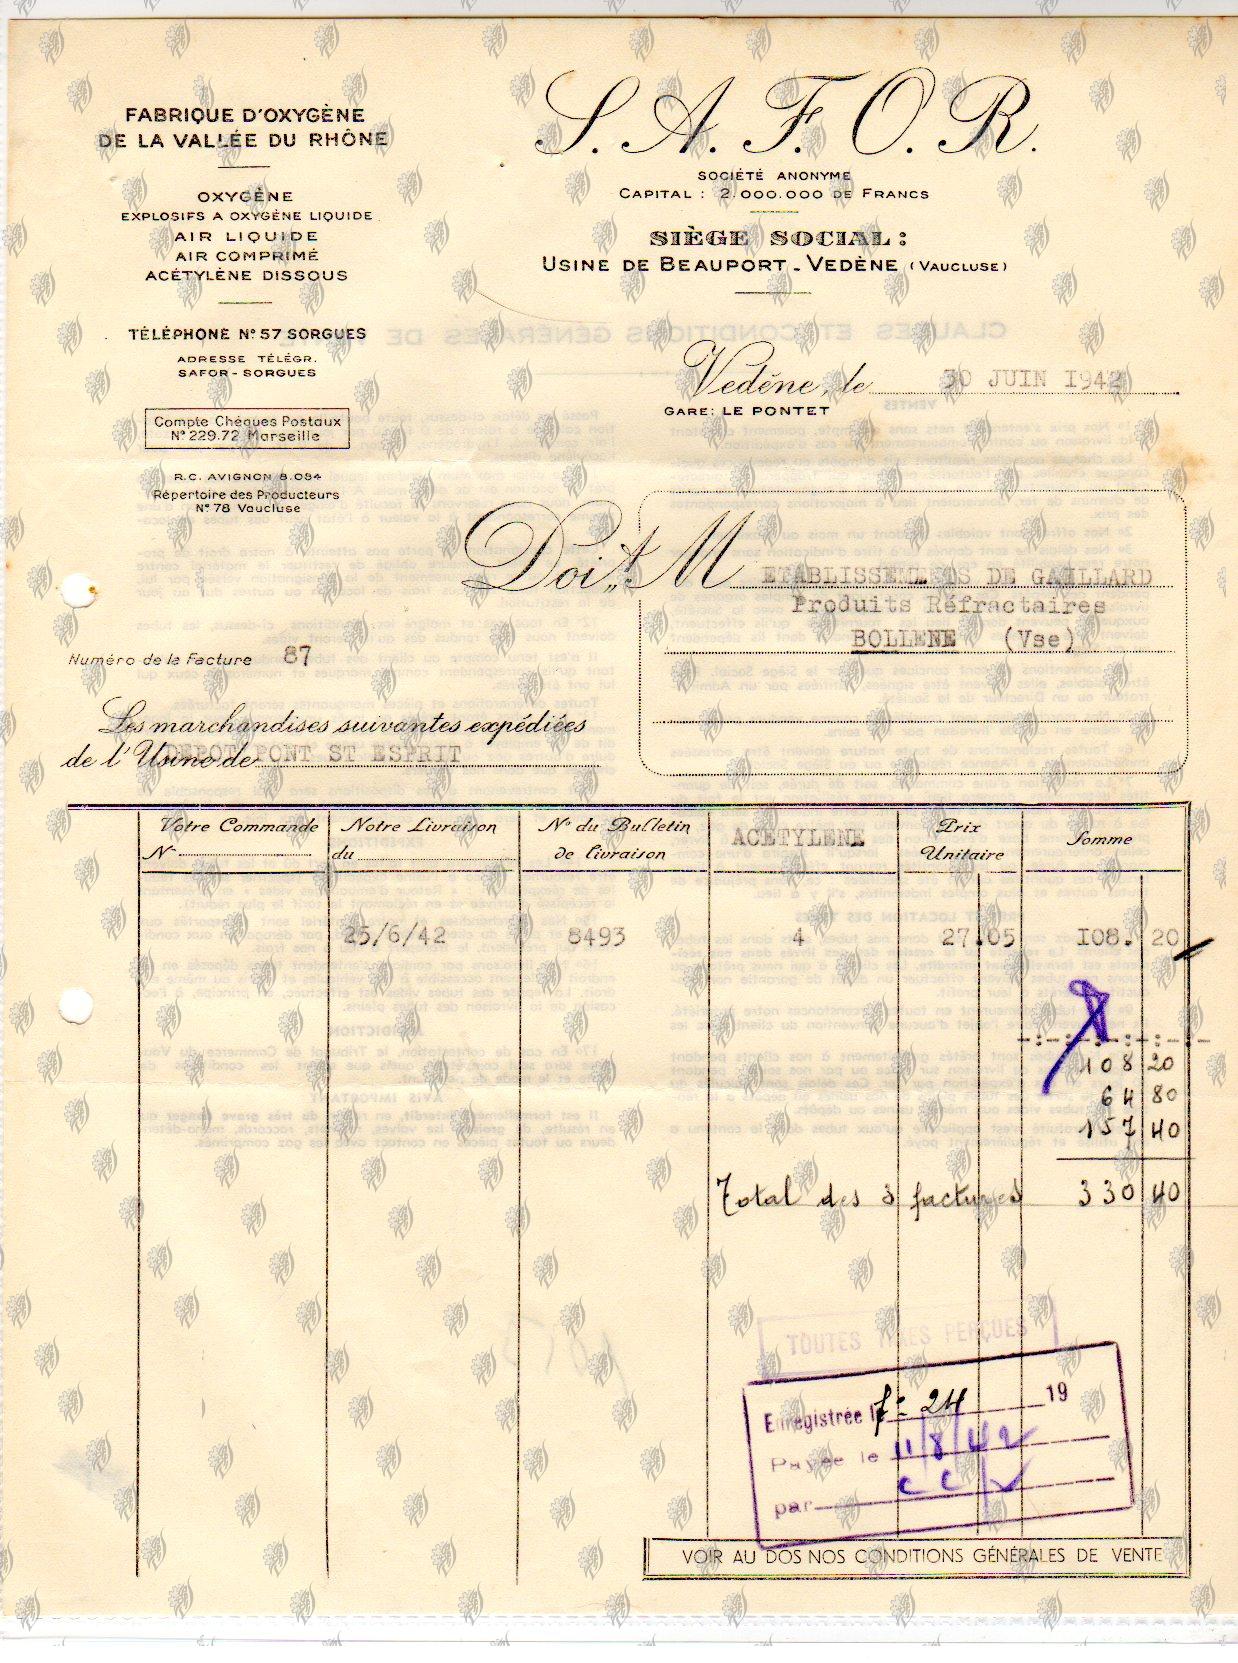 FABRIQUE D'OXYGÈNE
DE LA VALLÉE DU RHÔNE
OXYGÈNE
EXPLOSIFS A OXYGÈNE LIQUIDE
AIR LIQUIDE
AIR COMPRIMÉ
ACÉTYLÈNE DISSOUS
TÉLÉPHONE N° 57 SORGUES
ADRESSE TÉLÉGR.
SAFOR - SORGUES
Compte Chéques Postaux
N° 229.72 Marseille
R.C. AVIGNON 8.084
Répertoire des Producteurs
N° 78 Vaucluse
S. A. F. O. R.
SOCIÉTÉ ANONYME
CAPITAL : 2.000.000 DE FRANCS
SIÈGE SOCIAL :
USINE DE BEAUPORT - VEDÈNE (VAUCLUSE)
Vedène, le 30 JUIN 1942
GARE: LE PONTET
Doit M ETABLISSEMENTS DE GAILLARD
Produits Réfractaires
BOLLENE (Vse)
Numéro de la Facture 87
Les marchandises suivantes expédiées
de l'Usine de DEPOT PONT ST ESPRIT
Votre Commande Notre Livraison N° du Bulletin ACETYLENE Prix Somme
N° du de livraison Unitaire
25/6/42 8493 4 27.05 108. 20
108 20
64 80
157 40
Total des 3 factures 330 40
TOUTES TAXES PERÇUES
Enregistrée le f° 24 19
Payée le 11/8/42
par CCV
VOIR AU DOS NOS CONDITIONS GÉNÉRALES DE VENTE